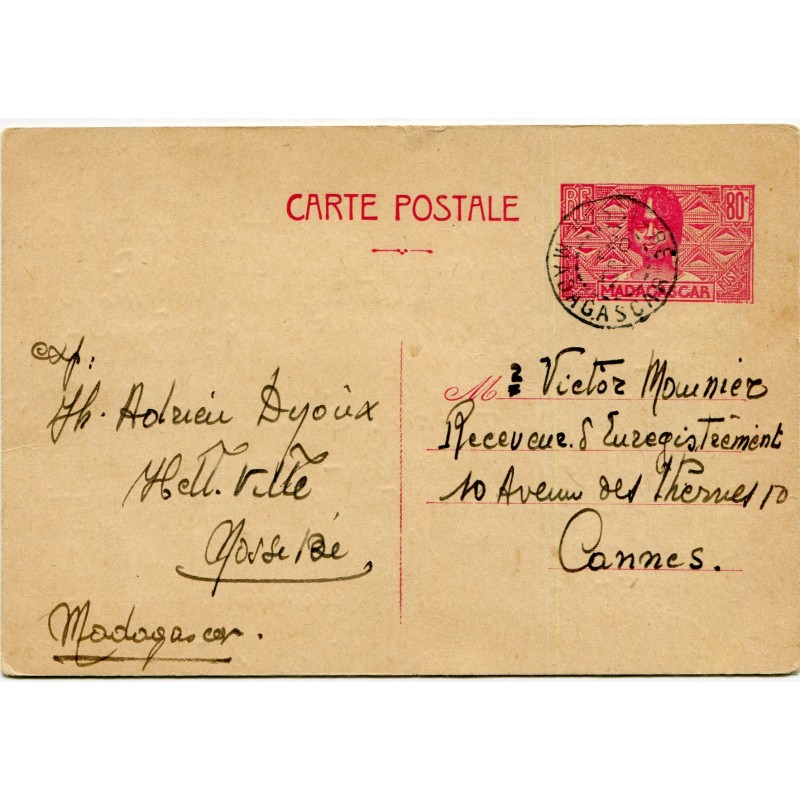 CARTE POSTALE
RF 80c
POSTES
MADAGASCAR
MADAGASCAR
exp:
Th. Adrien Dyoux
Hell. Ville
Nosse Bé
Madagascar.
Mr Victor Mounier
Receveur. d'Enregistrément
10 Avenue des Thermes 10
Cannes.